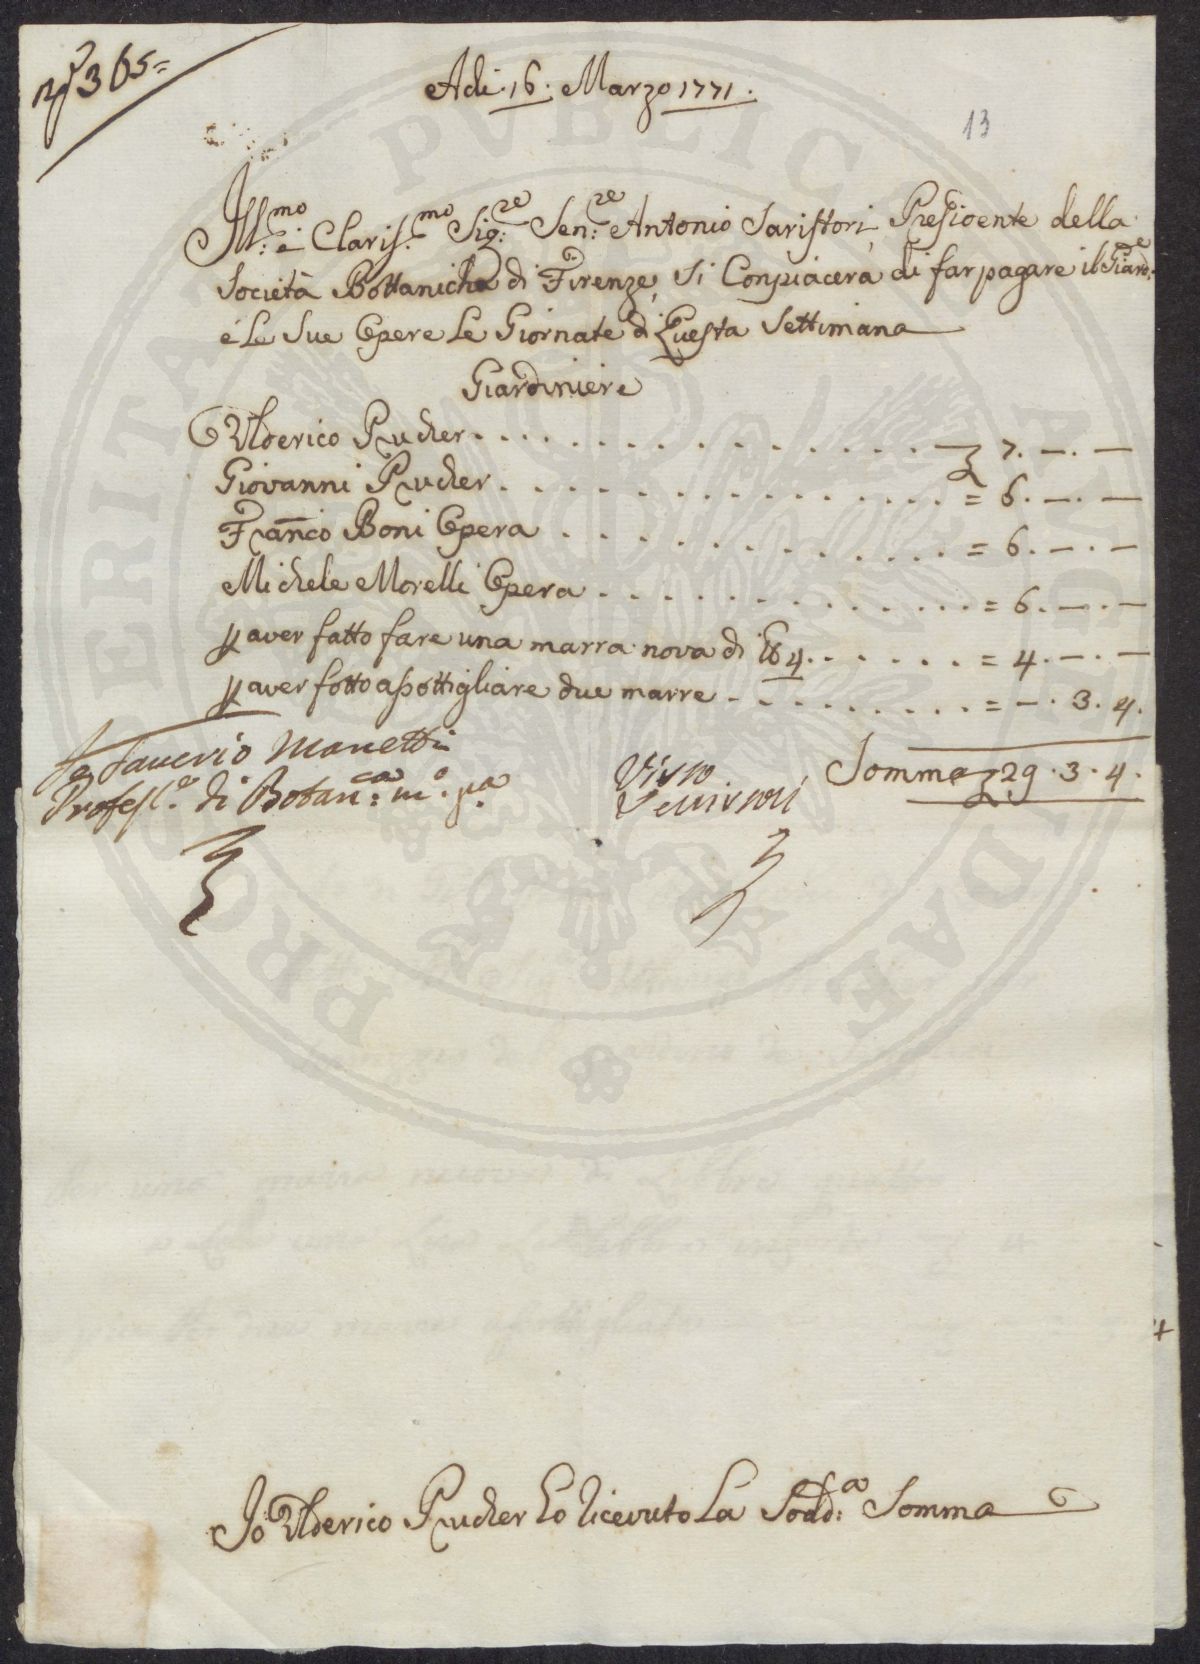 N° 365=
Adi. 16. Marzo 1771.
13
Ill:mo e Claris.mo Sig:re Sen:re Antonio Saristori, Presidente della
Società Bottanicha di Firenze, Si Conpiacerà di far pagare il Giard:e
e Le Sue Opere Le Giornate di Questa Settimana
Giardiniere
Ulderico Prucher 7. —. —
Giovanni Prucher = 6. —. —
Franco Boni Opera = 6. —. —
Michele Morelli Opera = 6. —. —
p aver fatto fare una marra nova di lb 4 = 4. —. —
p aver fatto asottigliare due marre = —. 3. 4.
Somma 29. 3. 4.
Saverio Manetti
Profess.e di Botan:ca m.o pa
Visto
Io Ulderico Prucher ho ricevuto La Sodd:a Somma
PROSPERITATI PVBLICAE AVGENDAE